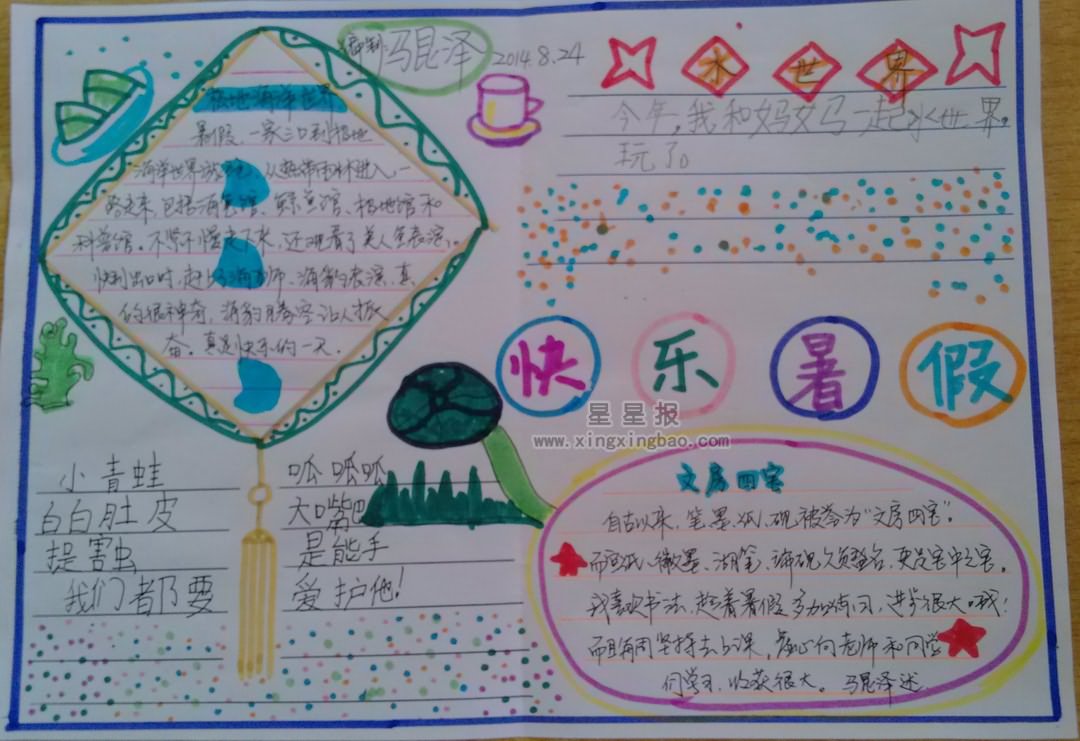 编制:马昆泽 2014.8.24
极地海洋世界
暑假,一家三口到极地
海洋世界游玩,从热带雨林进入,一
路走来,包括海兽馆、鲸鱼馆、极地馆和
科学馆。不紧不慢走下来,还观看了美人鱼表演。
快到出口时,赶上海狮、海豹表演,真
的很神奇,海豹腾空让人振
奋。真是快乐的一天。
水世界
今年,我和妈妈一起水世界
玩了。
快乐暑假
星星报
www.xingxingbao.com
小青蛙 呱呱呱
白白肚皮 大嘴巴
捉害虫 是能手
我们都要 爱护他!
文房四宝
自古以来,笔、墨、纸、砚被誉为“文房四宝”。
而宣纸、徽墨、湖笔、端砚久负盛名,更是宝中之宝。
我喜欢书法,趁着暑假多加练习,进步很大哦!
而且每周坚持去上课,虚心向老师和同学
们学习,收获很大。马昆泽述